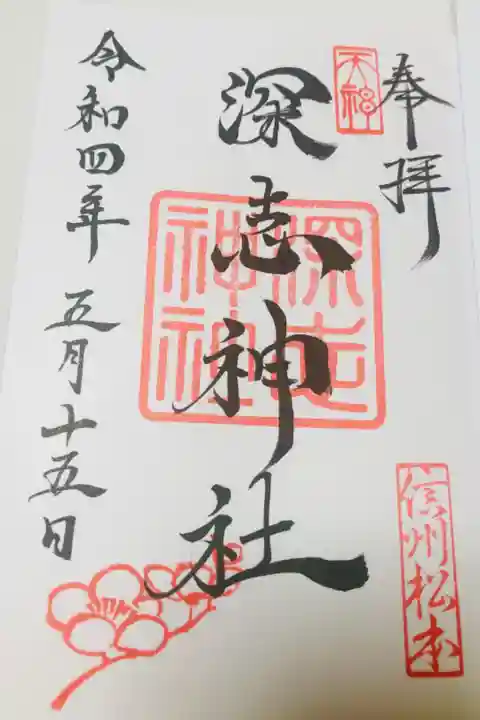 奉拝
天神
信州松本
深志神社
深志神社
令和四年 五月十五日